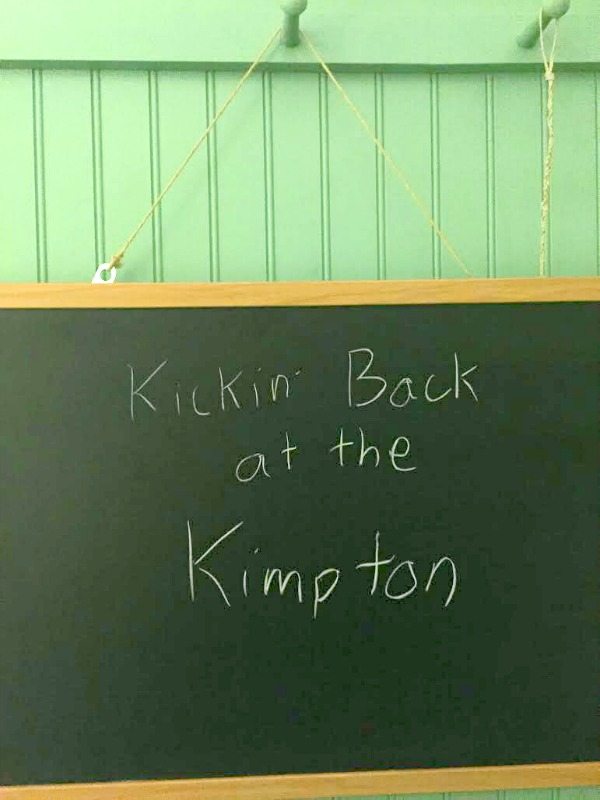 Kickin' Back
at the
Kimpton